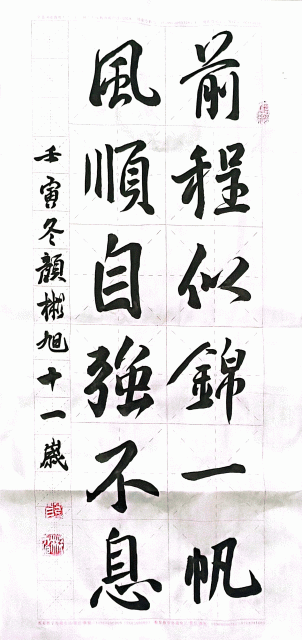 前程似錦一帆
風順自強不息
壬寅冬顏彬旭十一歲